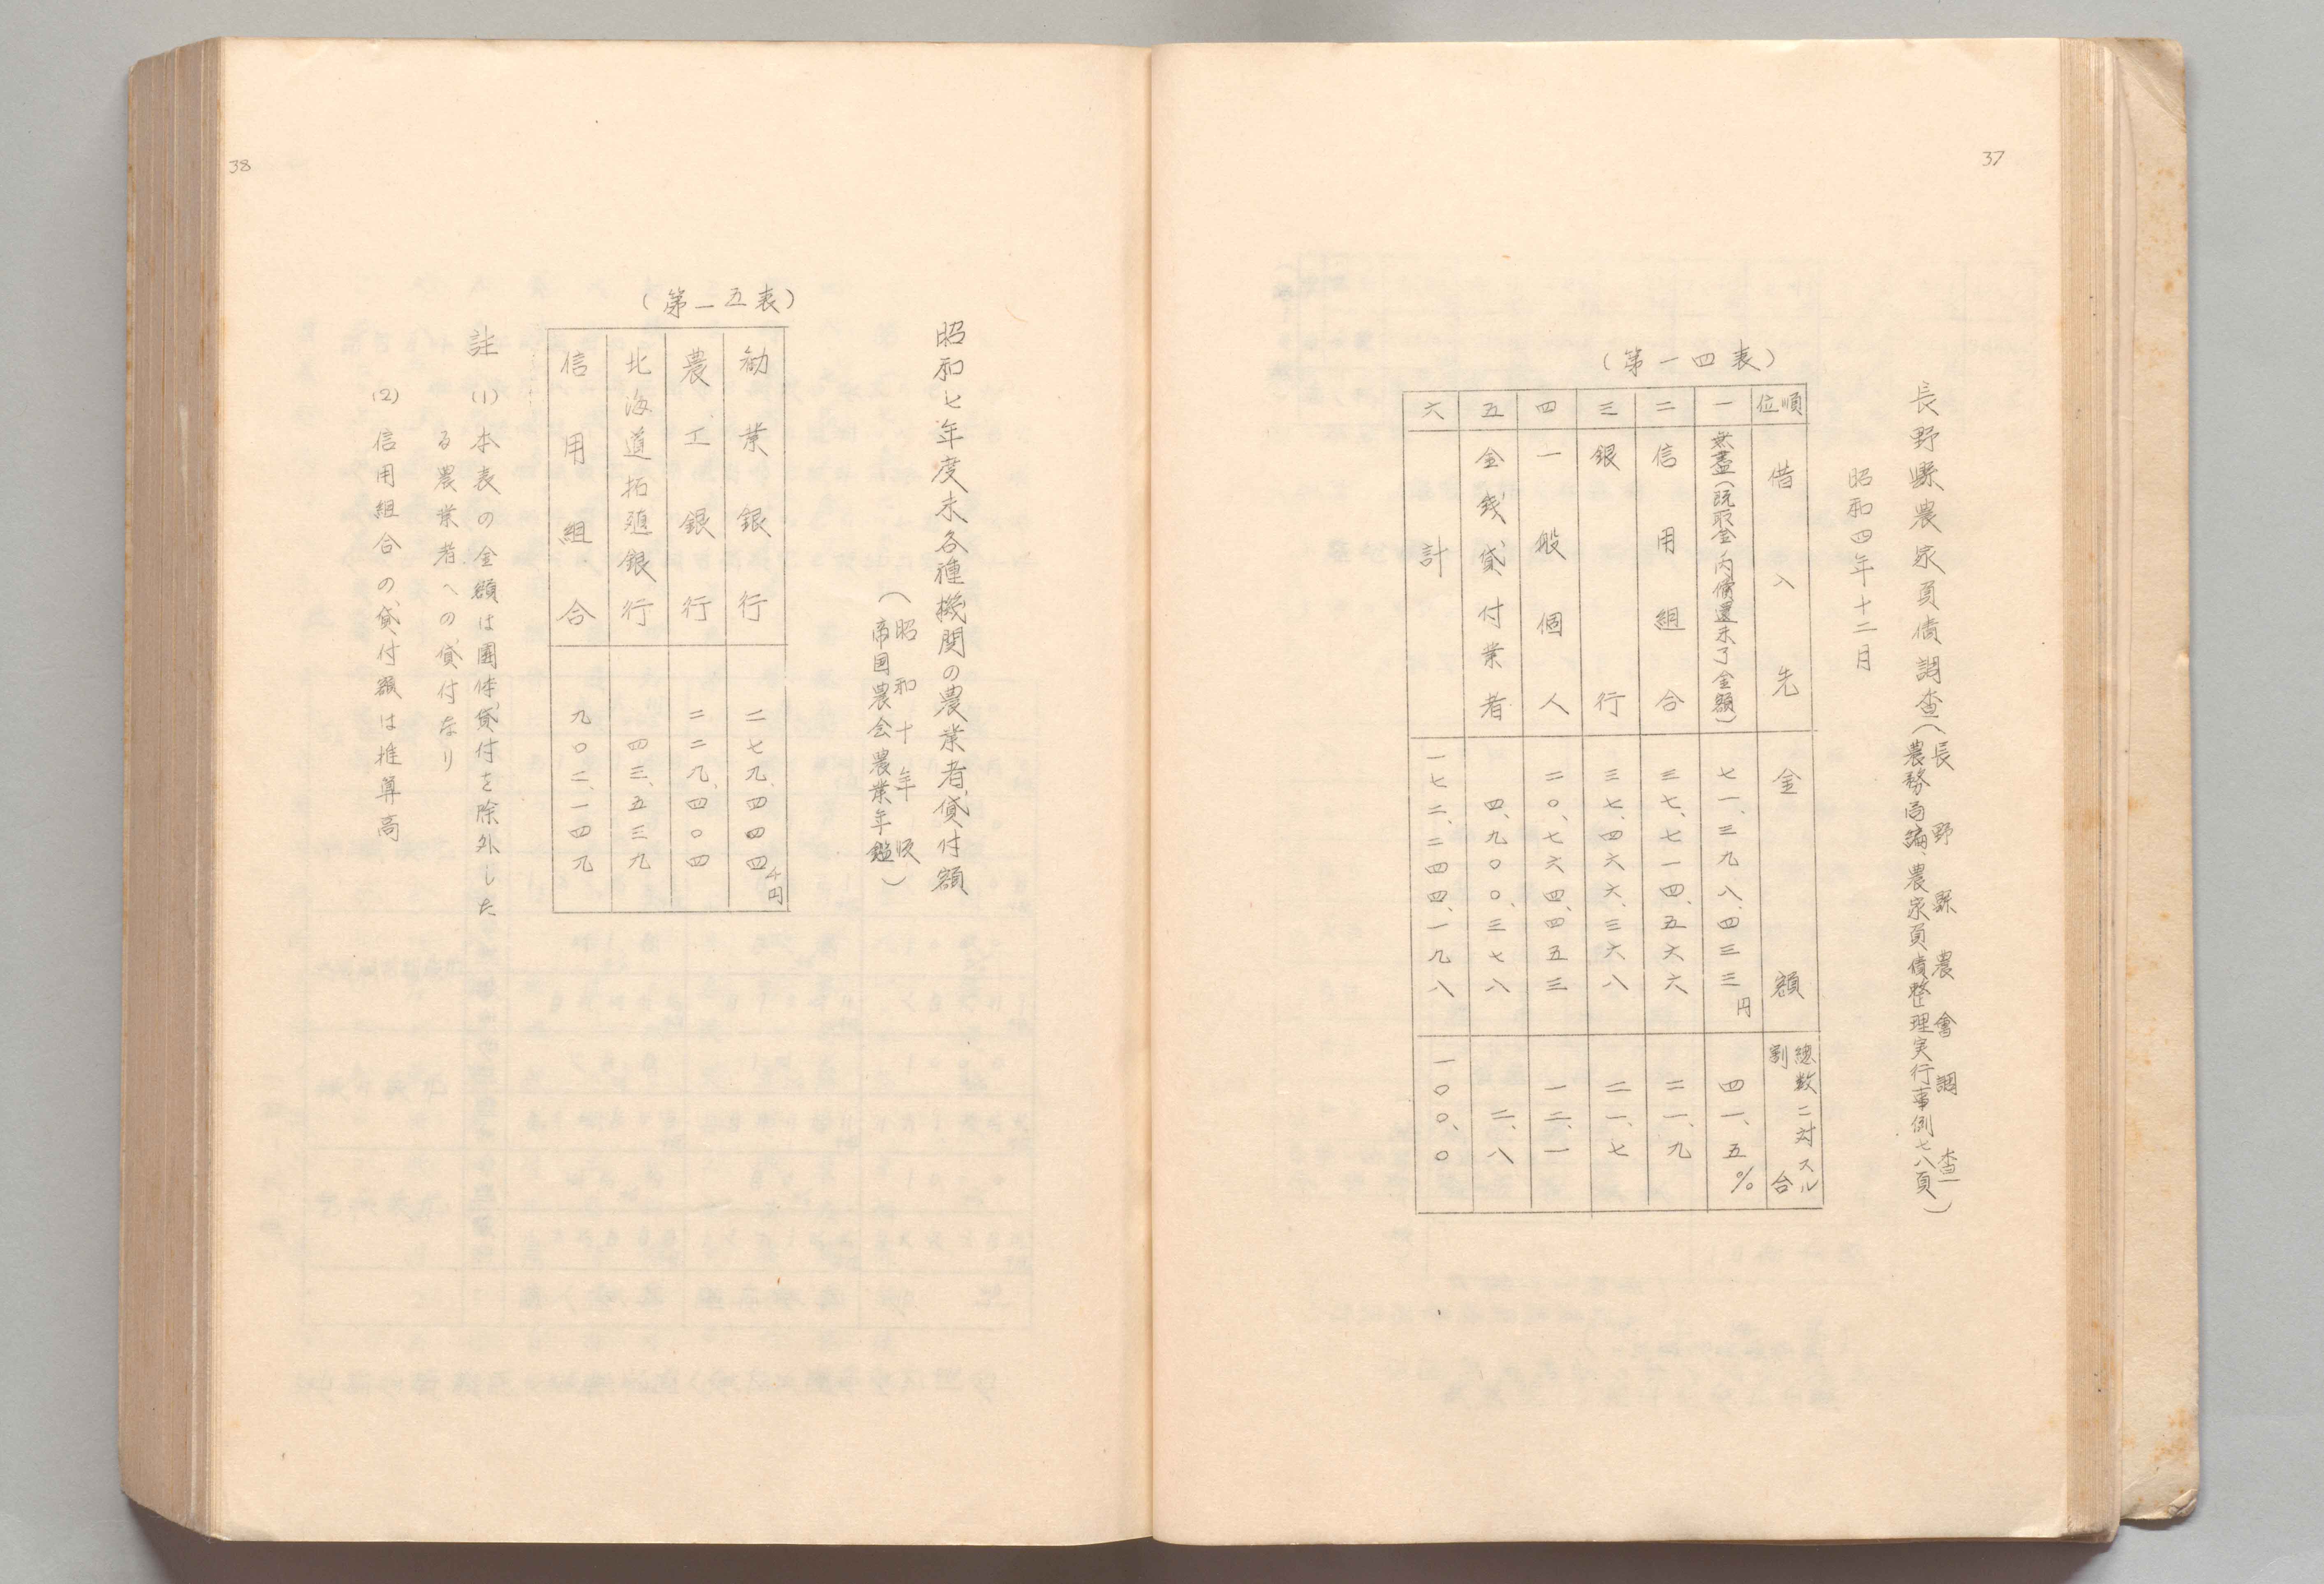 37
長野縣農家負債調査(長野縣農會調査
農務局編、農家負債整理実行事例七八頁)
昭和四年十二月
(第一四表)
順位 借入先 金額 総数ニ対スル割合
一 無盡(既取金ノ内償還未了金額) 七一、三九八、四三三円 四一、五%
二 信用組合 三七、七一四、五六六 二一、九
三 銀行 三七、四六六、三六八 二一、七
四 一般個人 二〇、七六四、四五三 一二、一
五 金銭貸付業者 四、九〇〇、三七八 二、八
六 計 一七二、二四四、一九八 一〇〇、〇
38
昭和七年度末各種機関の農業者貸付額
(昭和十年版
帝国農会農業年鑑)
(第一五表)
勧業銀行 二七九、四四四千円
農工銀行 二二九、四〇四
北海道拓殖銀行 四三、五三九
信用組合 九〇二、一四九
註 (1)本表の金額は團体貸付を除外した
る農業者への貸付なり
(2)信用組合の貸付額は推算高